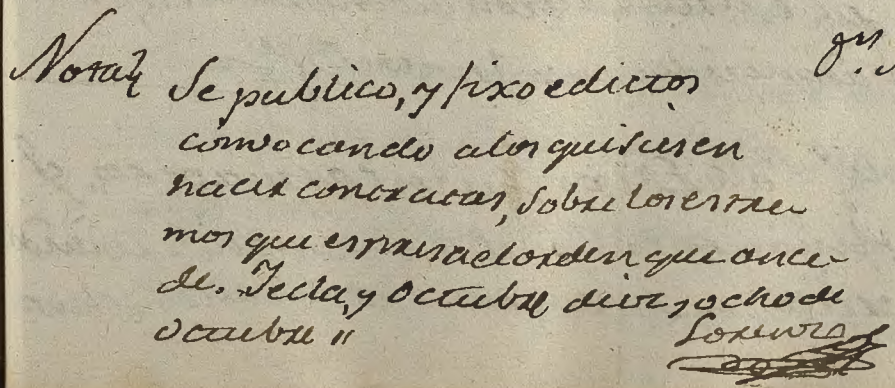 Nota
Se publico, y fixo edictos
convocando alos quisiesen
hacer contratas, sobre los estre-
mos que espresa el orden que ante-
de. Jecla, y Octubre diez, y ocho de
octubre "
Lorenzo